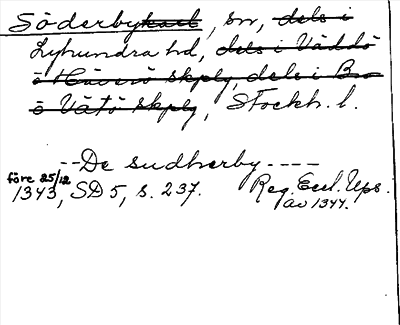 Söderbykarl, sn, dels i
Lyhundra hd, dels i Väddö
o Häverö skplg, dels i Bro
o Vätö skplg, Stockh. l.
--De sudherby----
före 25/12
1343, SD 5, s. 237. Reg. Eccl. Ups.
av 1344.